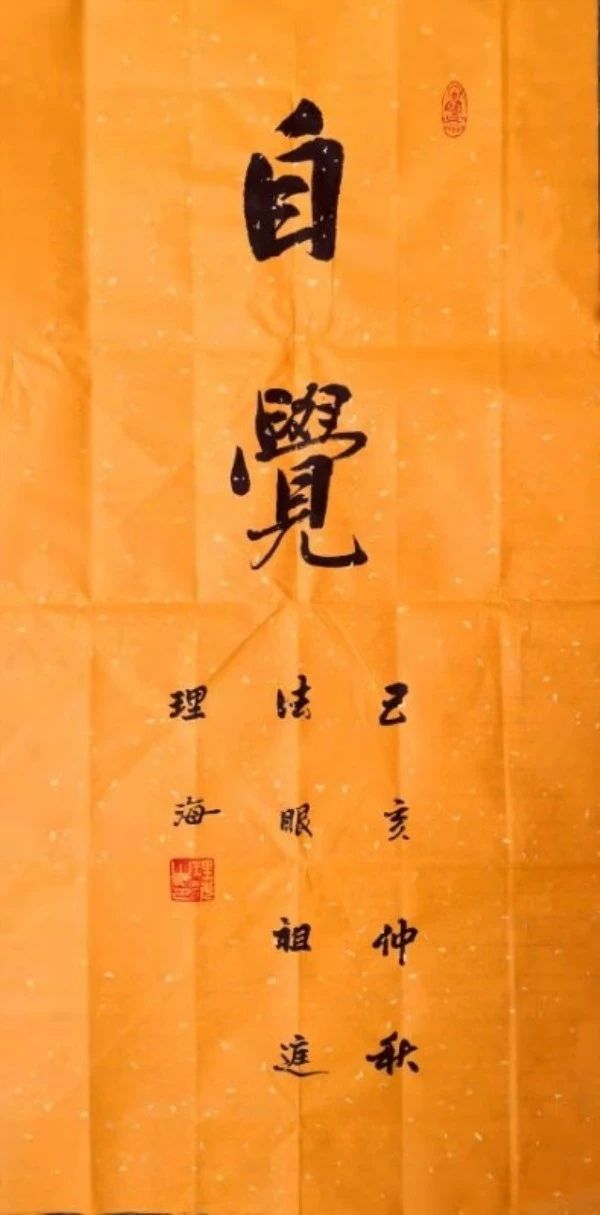 自覺
己亥仲秋
法眼祖庭
理海